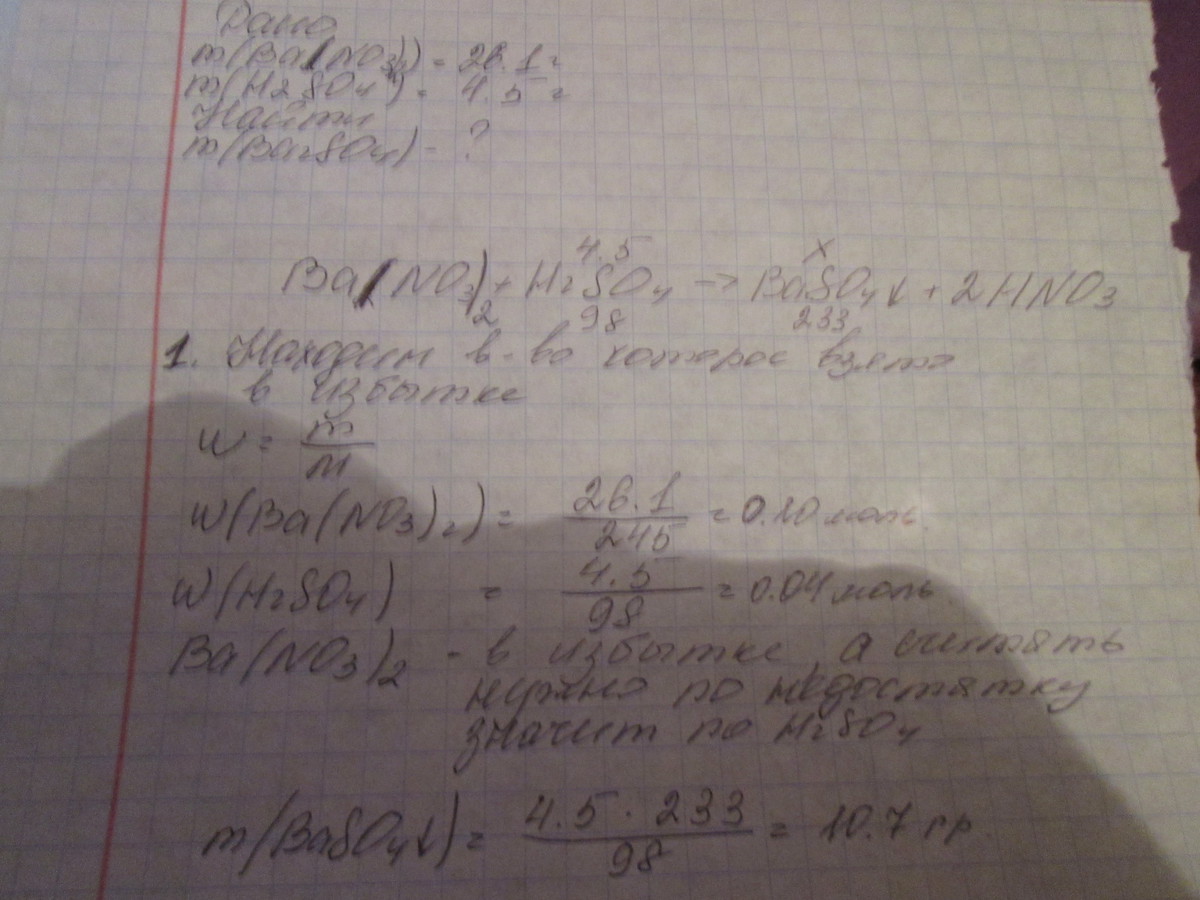 Дано
m(Ba(NO3)2) = 26.1 г
m(H2SO4) = 4.5 г
Найти
m(Ba2SO4) - ?
4.5 x
Ba(NO3)2 + H2SO4 -> BaSO4↓ + 2HNO3
98 233
1. Находим в-во которое взято
в избытке
W = m/M
W(Ba(NO3)2) = 26.1/245 = 0.10 моль.
W(H2SO4) = 4.5/98 = 0.04 моль.
Ba(NO3)2 - в избытке, а считать
нужно по недостатку
значит по H2SO4
m(BaSO4↓) = 4.5 · 233/98 = 10.7 гр